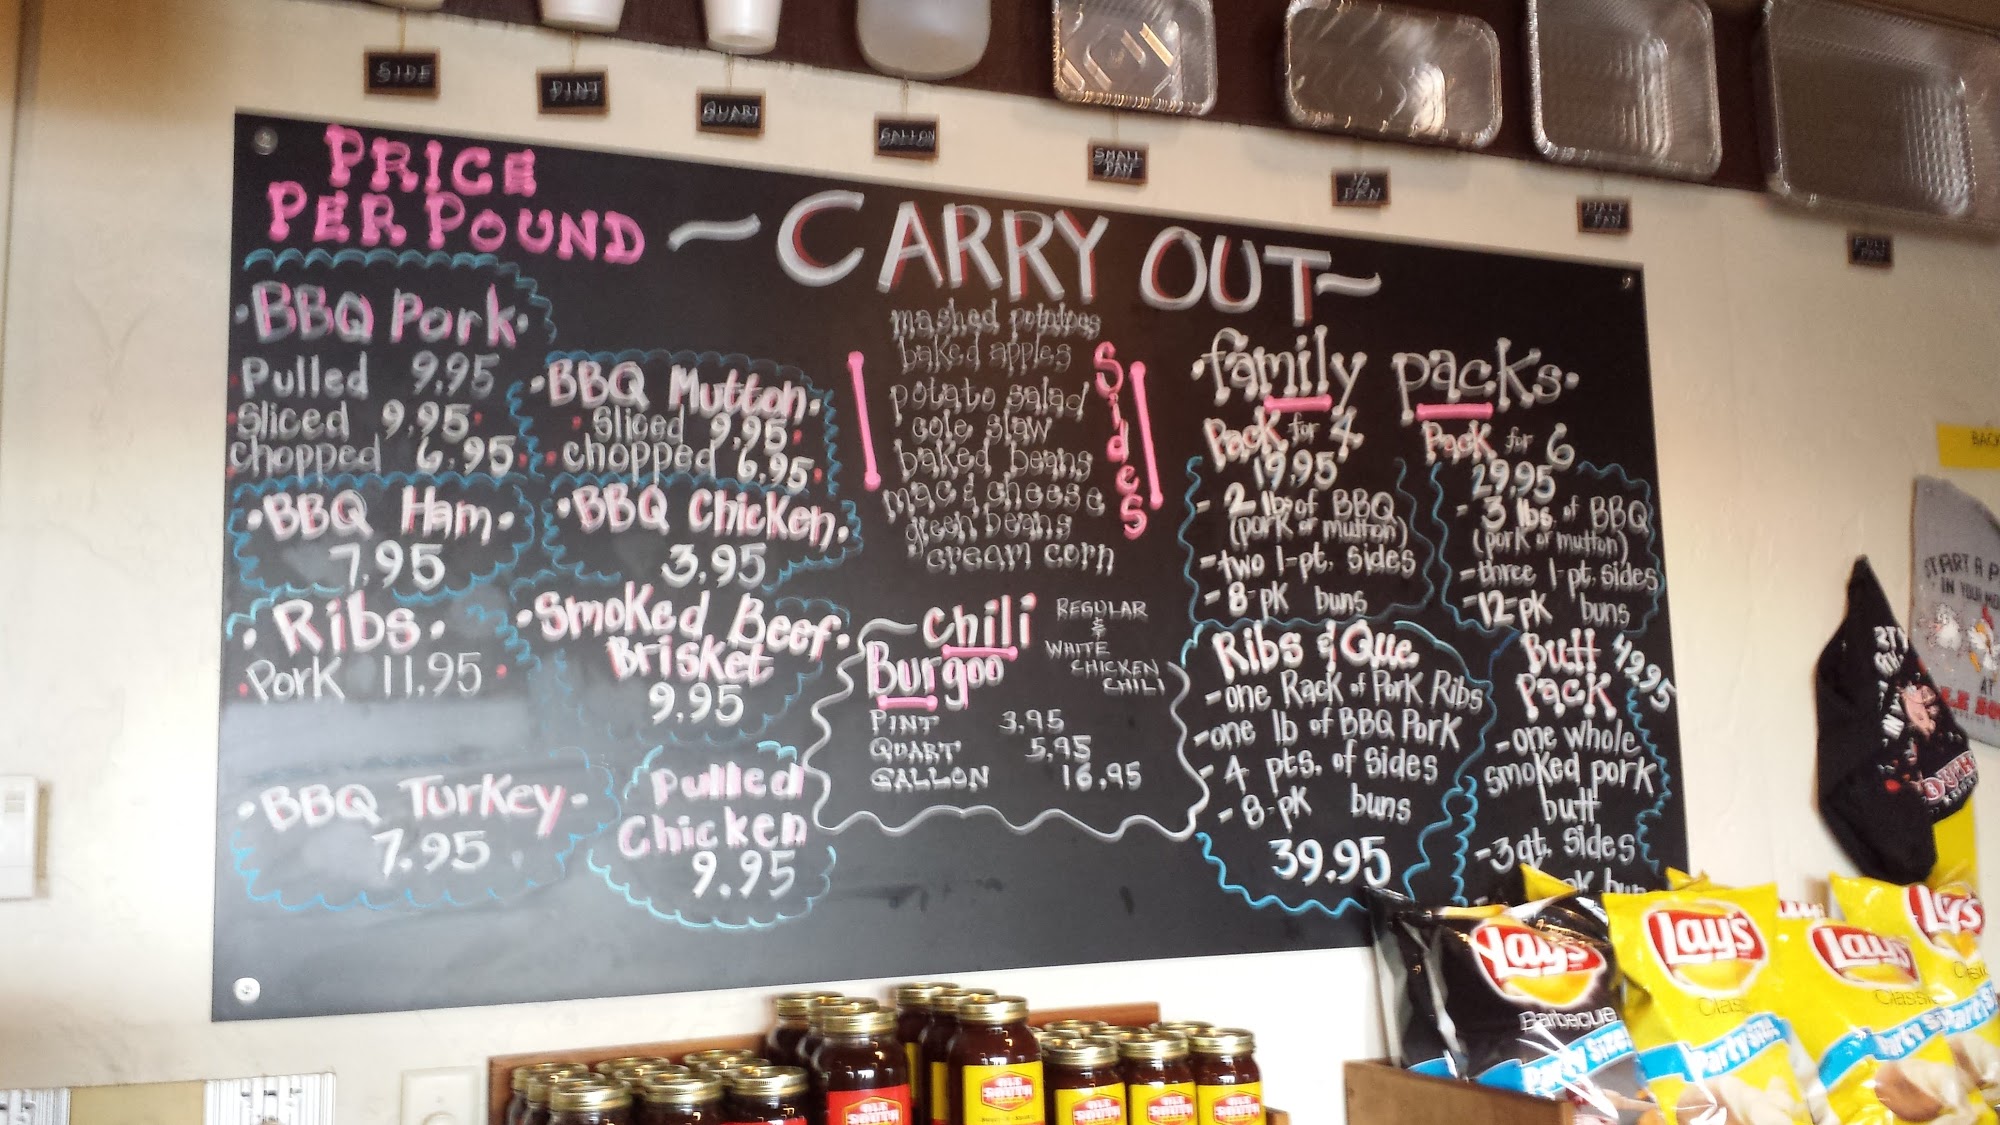 SIDE
PINT
QUART
GALLON
SMALL PAN
1/3 PAN
HALF PAN
FULL PAN
PRICE
PER POUND
~CARRY OUT~
·BBQ Pork·
Pulled 9.95
Sliced 9.95
chopped 6.95
·BBQ Mutton·
Sliced 9.95
chopped 6.95
·BBQ Ham·
7.95
·BBQ Chicken·
3.95
·Ribs·
Pork 11.95
·Smoked Beef·
Brisket
9.95
·BBQ Turkey·
7.95
Pulled
Chicken
9.95
Sides
mashed potatoes
baked apples
potato salad
cole slaw
baked beans
mac & cheese
green beans
cream corn
Chili
Burgoo
REGULAR
&
WHITE
CHICKEN
CHILI
PINT 3.95
QUART 5.95
GALLON 16.95
·family packs·
Pack for 4
19.95
- 2 lbs of BBQ
(pork or mutton)
- two 1-pt. sides
- 8-pk buns
Pack for 6
29.95
- 3 lbs. of BBQ
(pork or mutton)
- three 1-pt. sides
- 12-pk buns
Ribs & Que
- one Rack of Pork Ribs
- one lb of BBQ Pork
- 4 pts. of sides
- 8-pk buns
39.95
Butt 49.95
Pack
- one whole
smoked pork
butt
- 3 qt. sides
BACK
START A P
IN YOUR MO
AT
Lay's
Barbecue
Party Size!
Lay's
Classic
Party Size
Lay's
Classic
Party Size
Lay's
Party Size
OLE
SOUTH
OLE
SOUTH
OLE
SOUTH
OLE
SOUTH
OLE
SOUTH